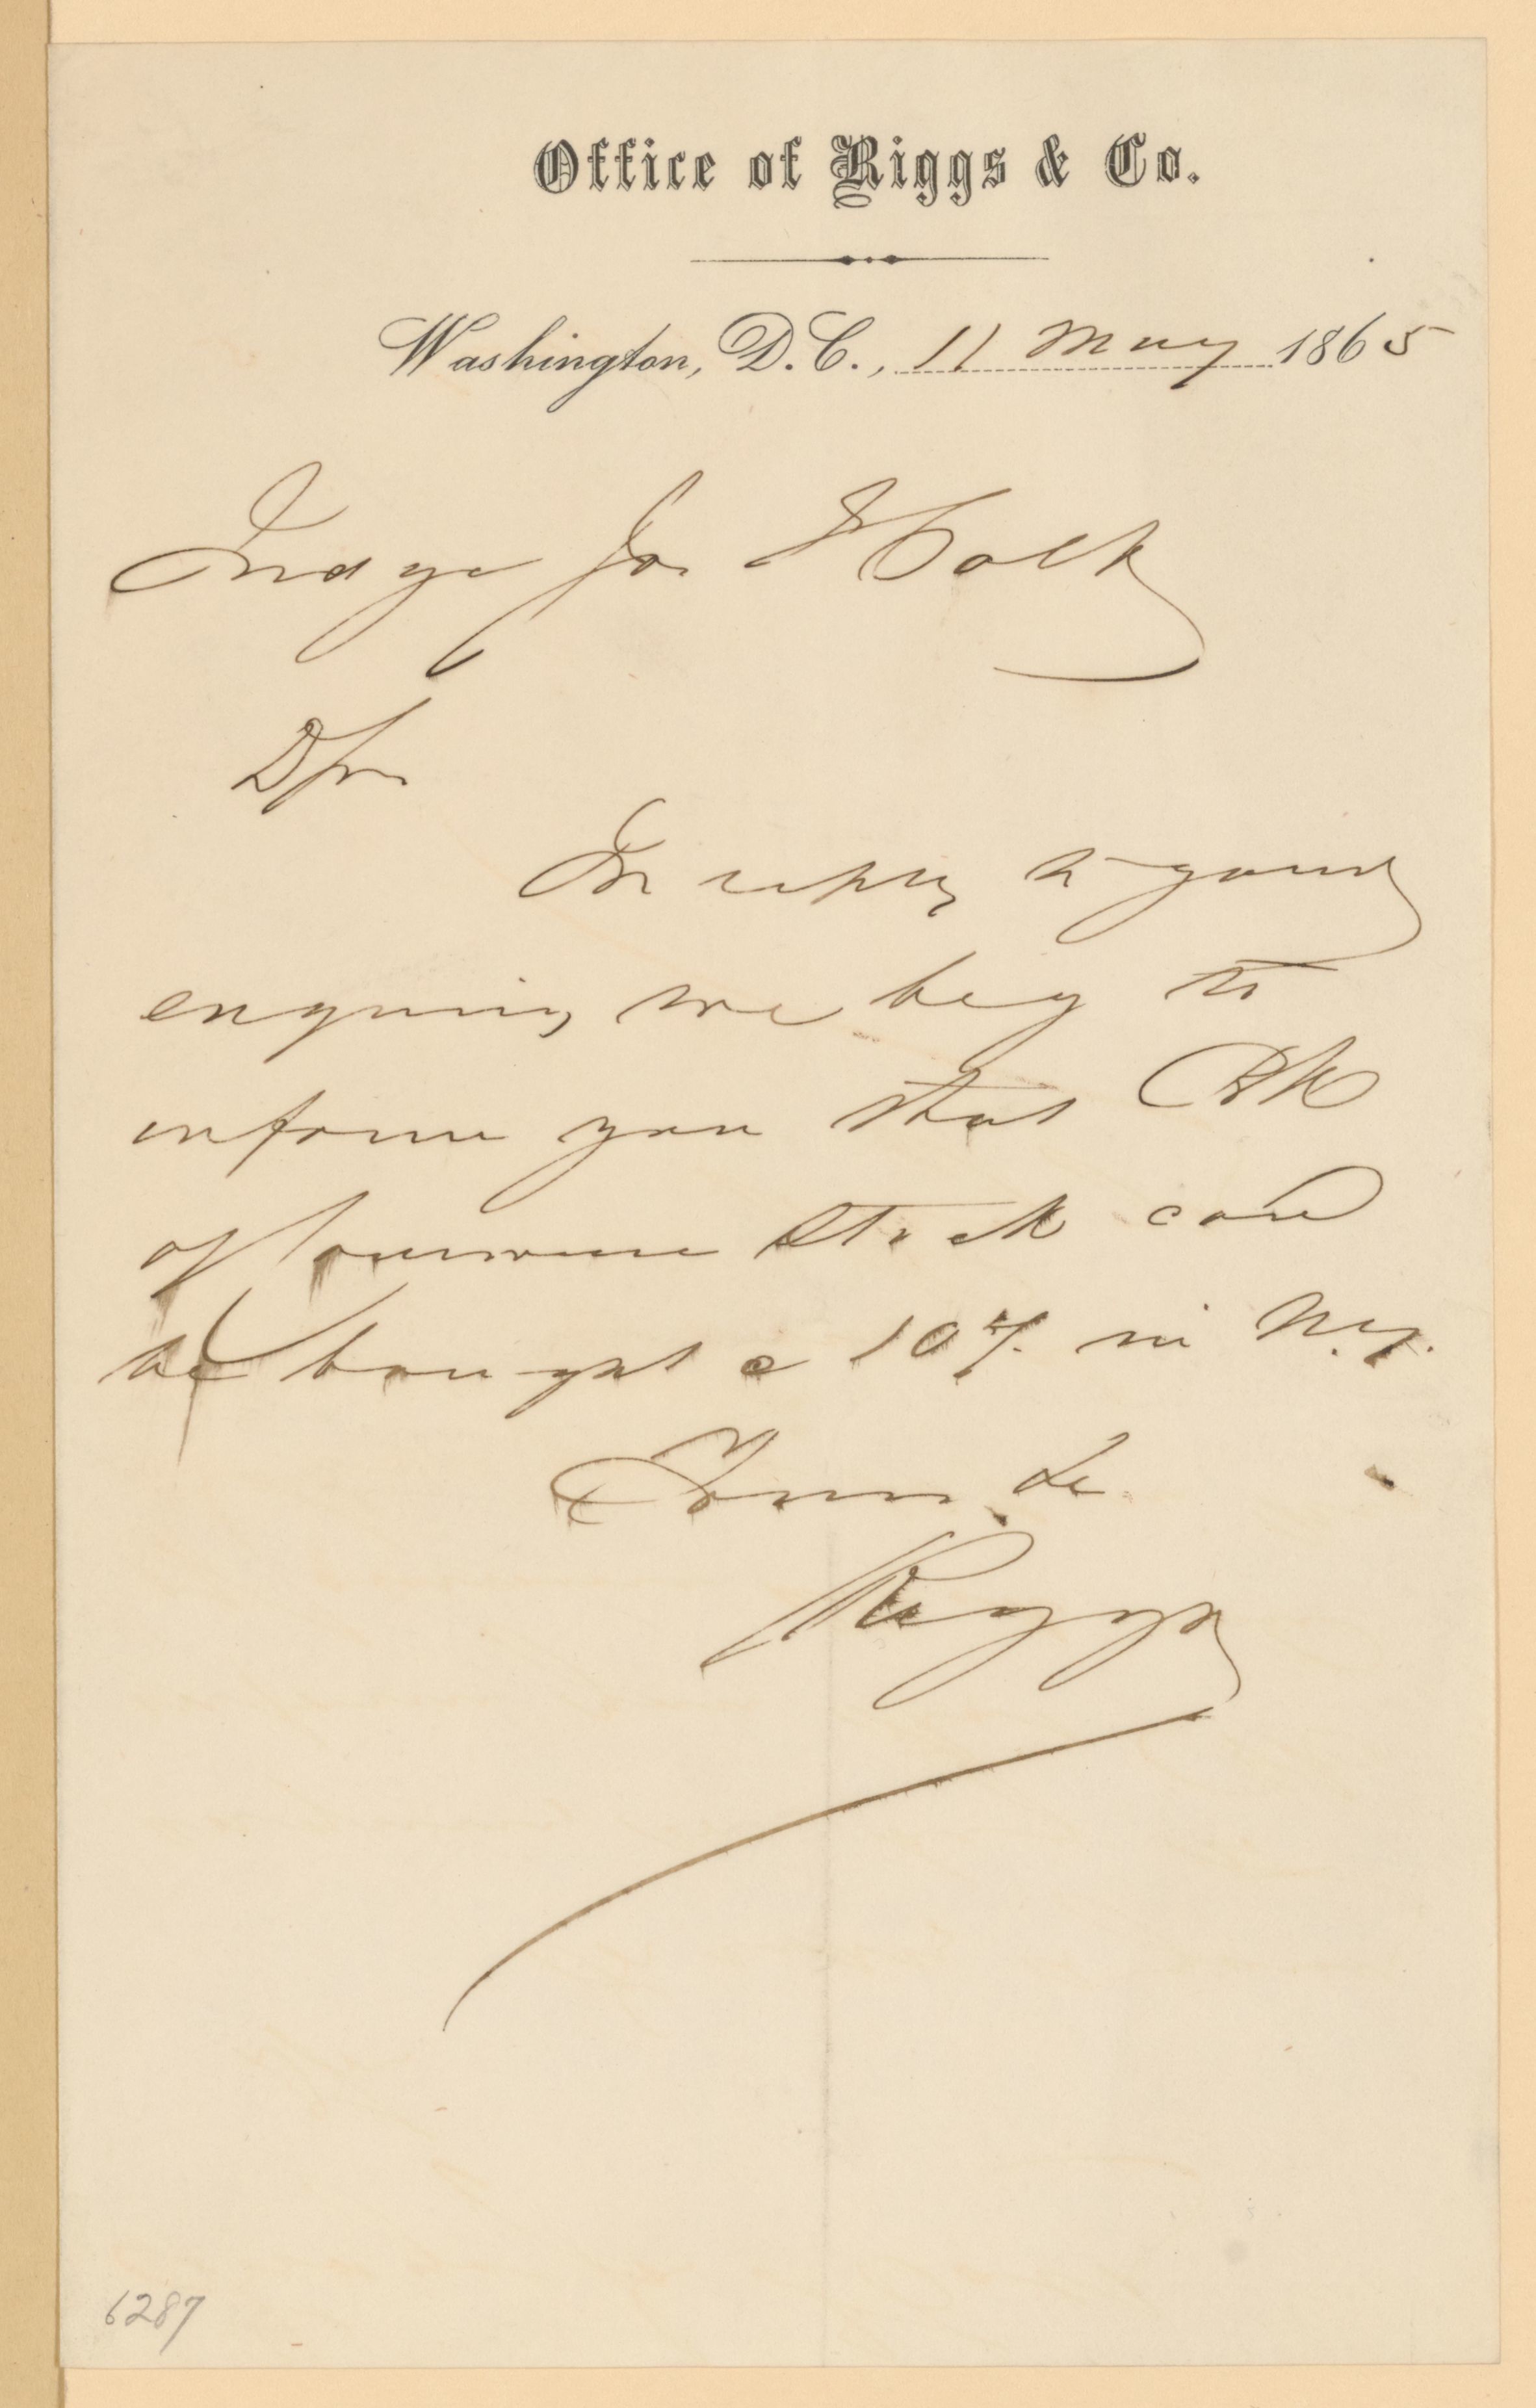 Office of Riggs & Co.
Washington, D.C., 11 May 1865
Judge Jos Holt
D Sir
In reply to your
enquiry we beg to
inform you that Bk
of Commerce Stock can
be bought @ 107. in N.Y.
Yours &c
Riggs
6287